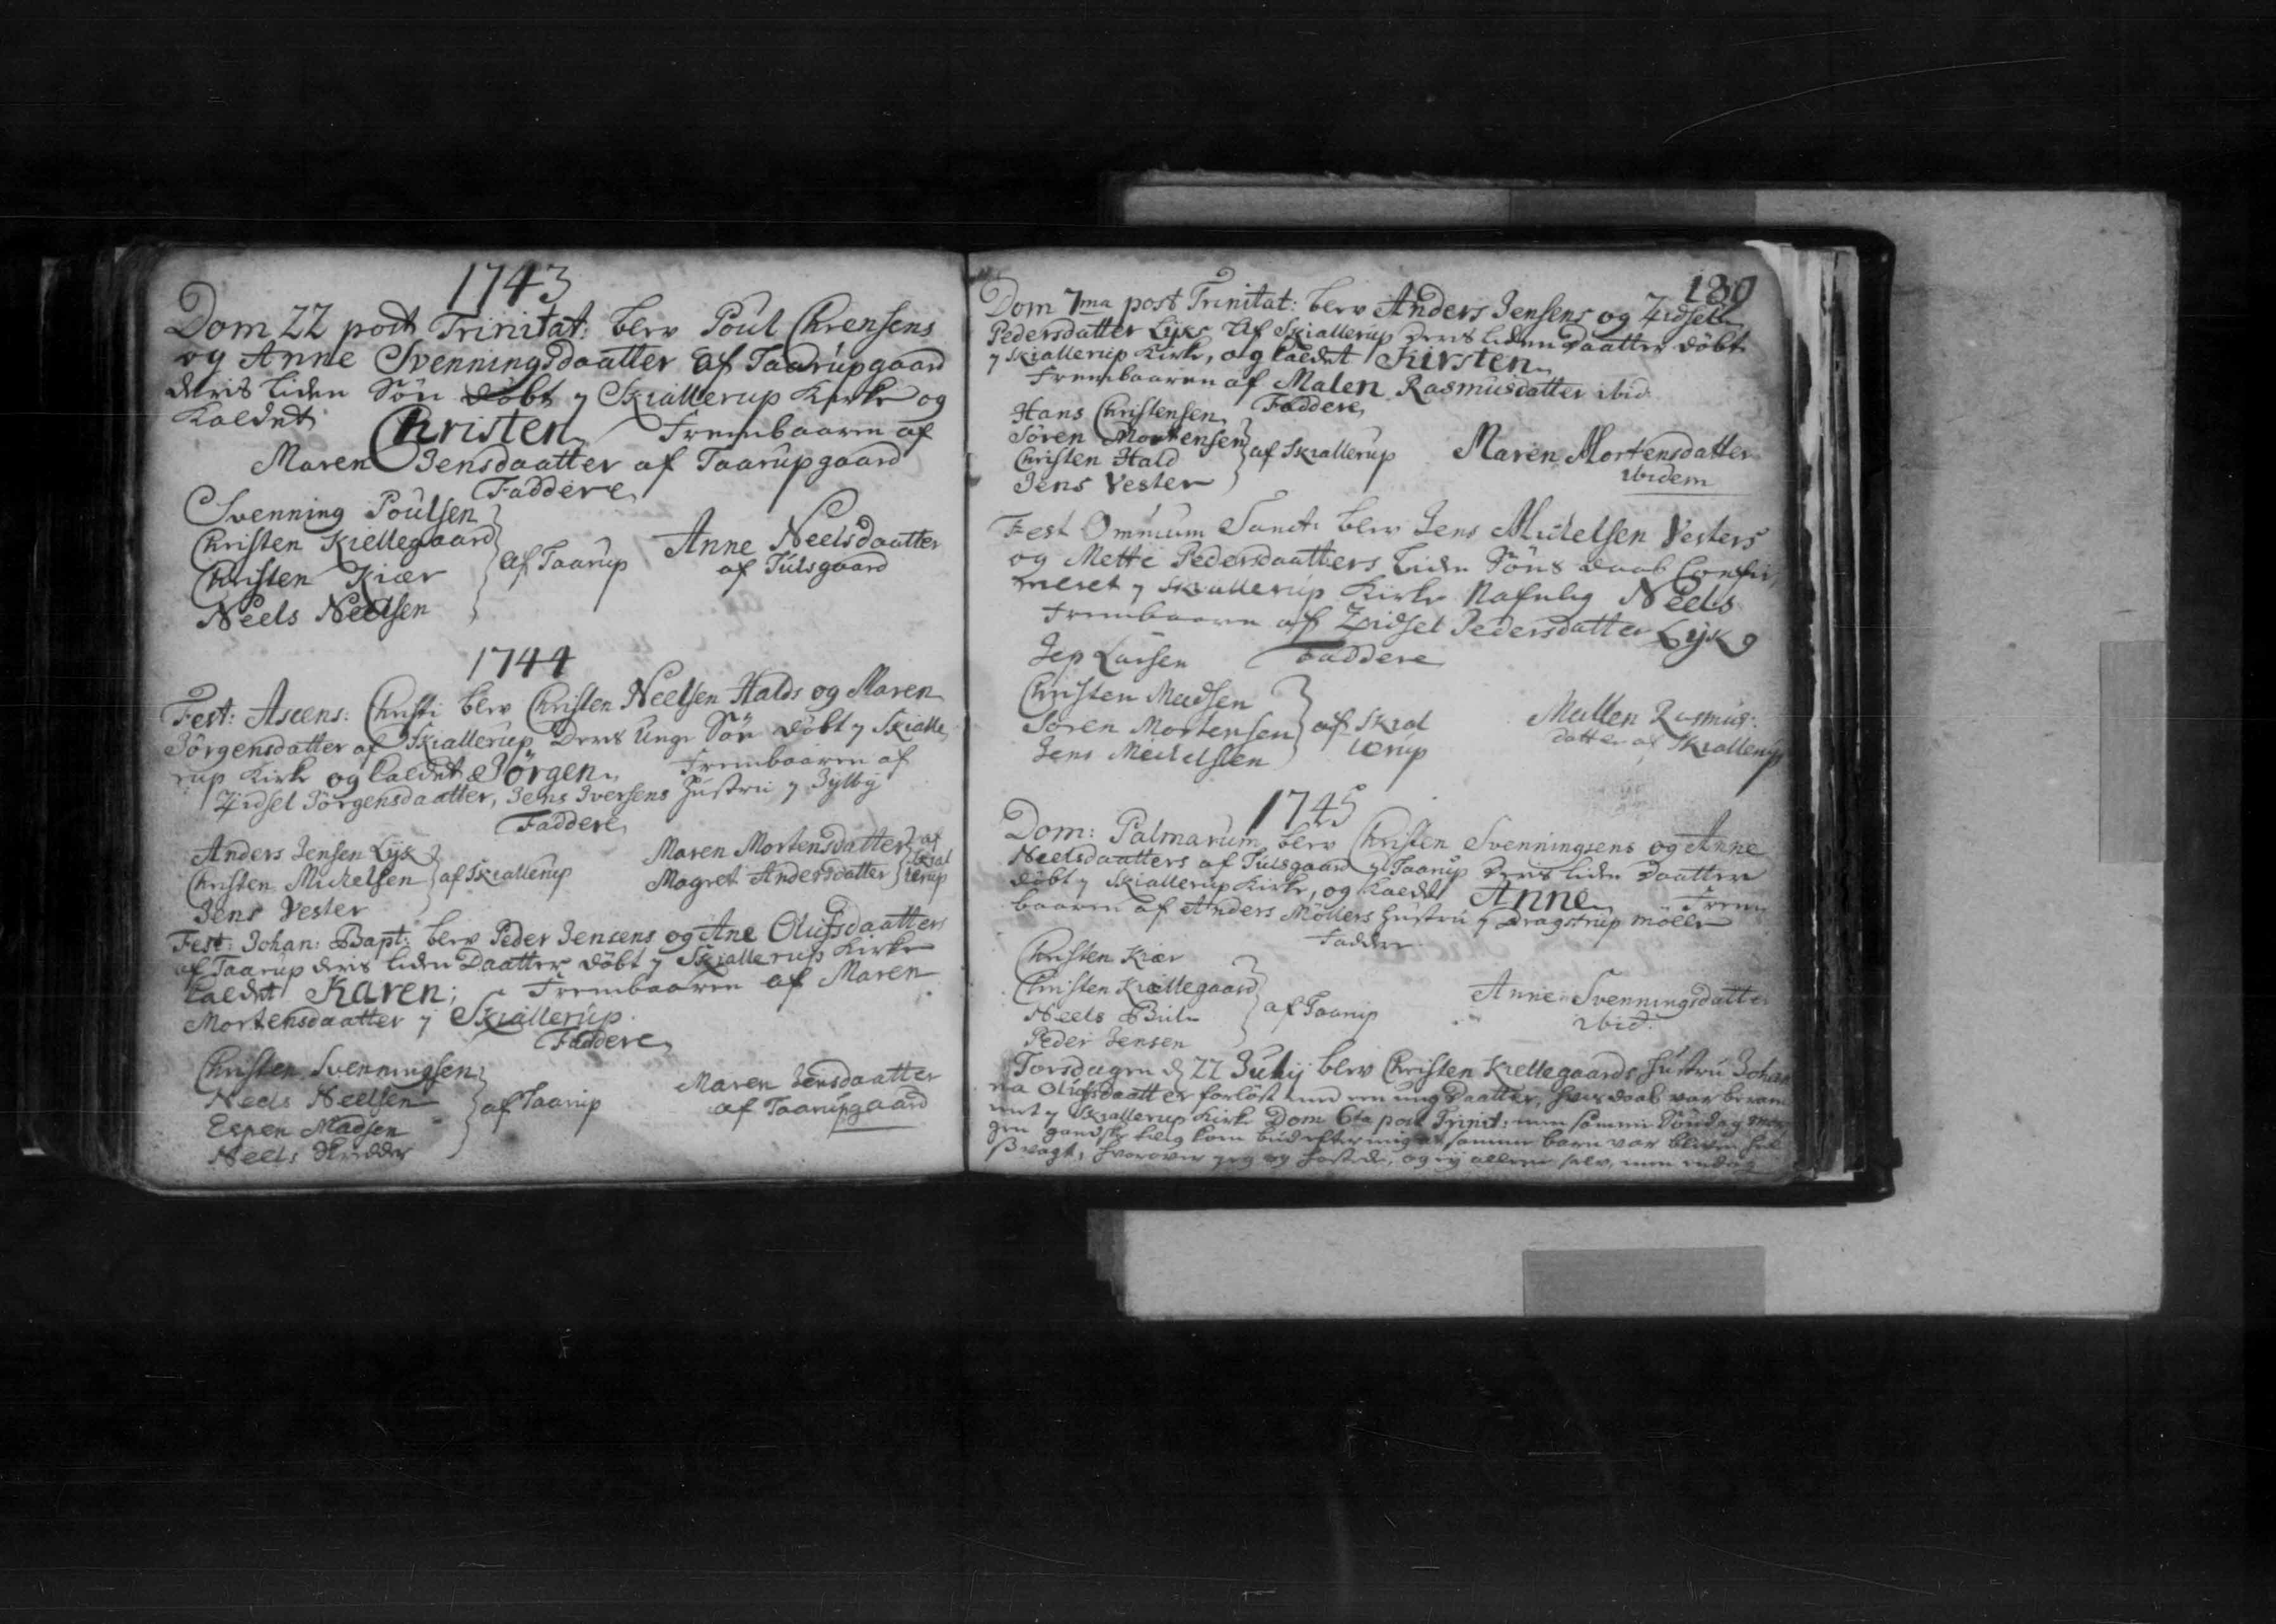 1743
Dom 22 post Trinitat: blev Poul Chrensens
og Anne Svenningsdaatter af Taarupgaard
deris liden Sön döbt y Skiallerup Kirke og
Kaldet Christen Frembaaren af
Maren Jensdaatter af Taarupgaard
Faddere
Svenning Poulsen
Christen Kiellegaard
Christen Kiær
Neels Neelsen
af Taarup
Anne Neelsdaatter
af Tulsgaard
1744
Fest: Ascens: Christi blev Christen Neelsen Halds og Maren
Jörgensdatter af Skiallerup Deris Unge Sön döbt y Skialle
rup Kirke og kaldet Jörgen Frembaaren af
Zidsel Jörgensdaatter, Jens Iversens Hustru y Jÿlbÿ
Faddere
Anders Jensen Lÿk
Christen Michelsen
Jens Vester
af Skiallerup
Maren Mortensdatter
Magret Andersdatter
af
Skial
lerup
Fest: Johan: Bapt: blev Peder Jensens og Ane Olufsdaatters
af Taarup deris liden Daatter döbt y Skiallerup Kirke
kaldet Karen; Frembaaren af Maren
Mortensdaatter y Skiallerup.
Faddere
Christen Svenningsen
Neels Neelsen
Espen Madsen
Neels Skredder
af Taarup
Maren Jensdaatter
af Taarupgaard
180
Dom 7ma post Trinitat: blev Anders Jensens og Zidsel
Pedersdatter Lÿks af Skiallerup deris liden Daatter döbt
y Skiallerup Kirke, og kaldet Kirsten
Frembaaren af Malen Rasmusdatter ibid.
Faddere
Hans Christensen
Sören Mortensen
Christen Hald
Jens Vester
af Skiallerup
Maren Mortensdatter
ibidem
Fest Omnium Sanct: blev Jens Michelsen Vesters
og Mette Pedersdaatters liden Söns daab Confir
meret y Skiallerup Kirke Nafnlig Neels
Frembaaren af Zidsel Pedersdatter Lÿk
Faddere
Jep Larsen
Christen Madsen
Sören Mortensen
Jens Michelsen
af Skial
lerup
Mallen Rasmus:
datter af Skiallerup
1745
Dom: Palmarum blev Christen Svenningsens og Anne
Neelsdaatters af Tulsgaard y Taarup Deris liden Daatter
döbt y Skiallerup Kirke, og kaldet Anne Frem
baaren af Anders Möllers Hustru y Dragstrup Mölle
Faddere
Christen Kiær
Christen Kiellegaard
Neels
Peder Jensen
af Taarup
Anne Svenningsdatter
ibid.
Torsdagen d 22 Julij blev Christen Kiellegaards Hustru Johan
na Olufsdaatter forlöst med een ung Daatter, hvis daab var beram
met y Skiallerup Kirke Dom 6ta post Trinit: men samme Söndag Mor
gen gandske tilig kom bud efter mig at samme barn var bleven
svagt, hvorover jeg og hastede, og ej allene selv, men endog